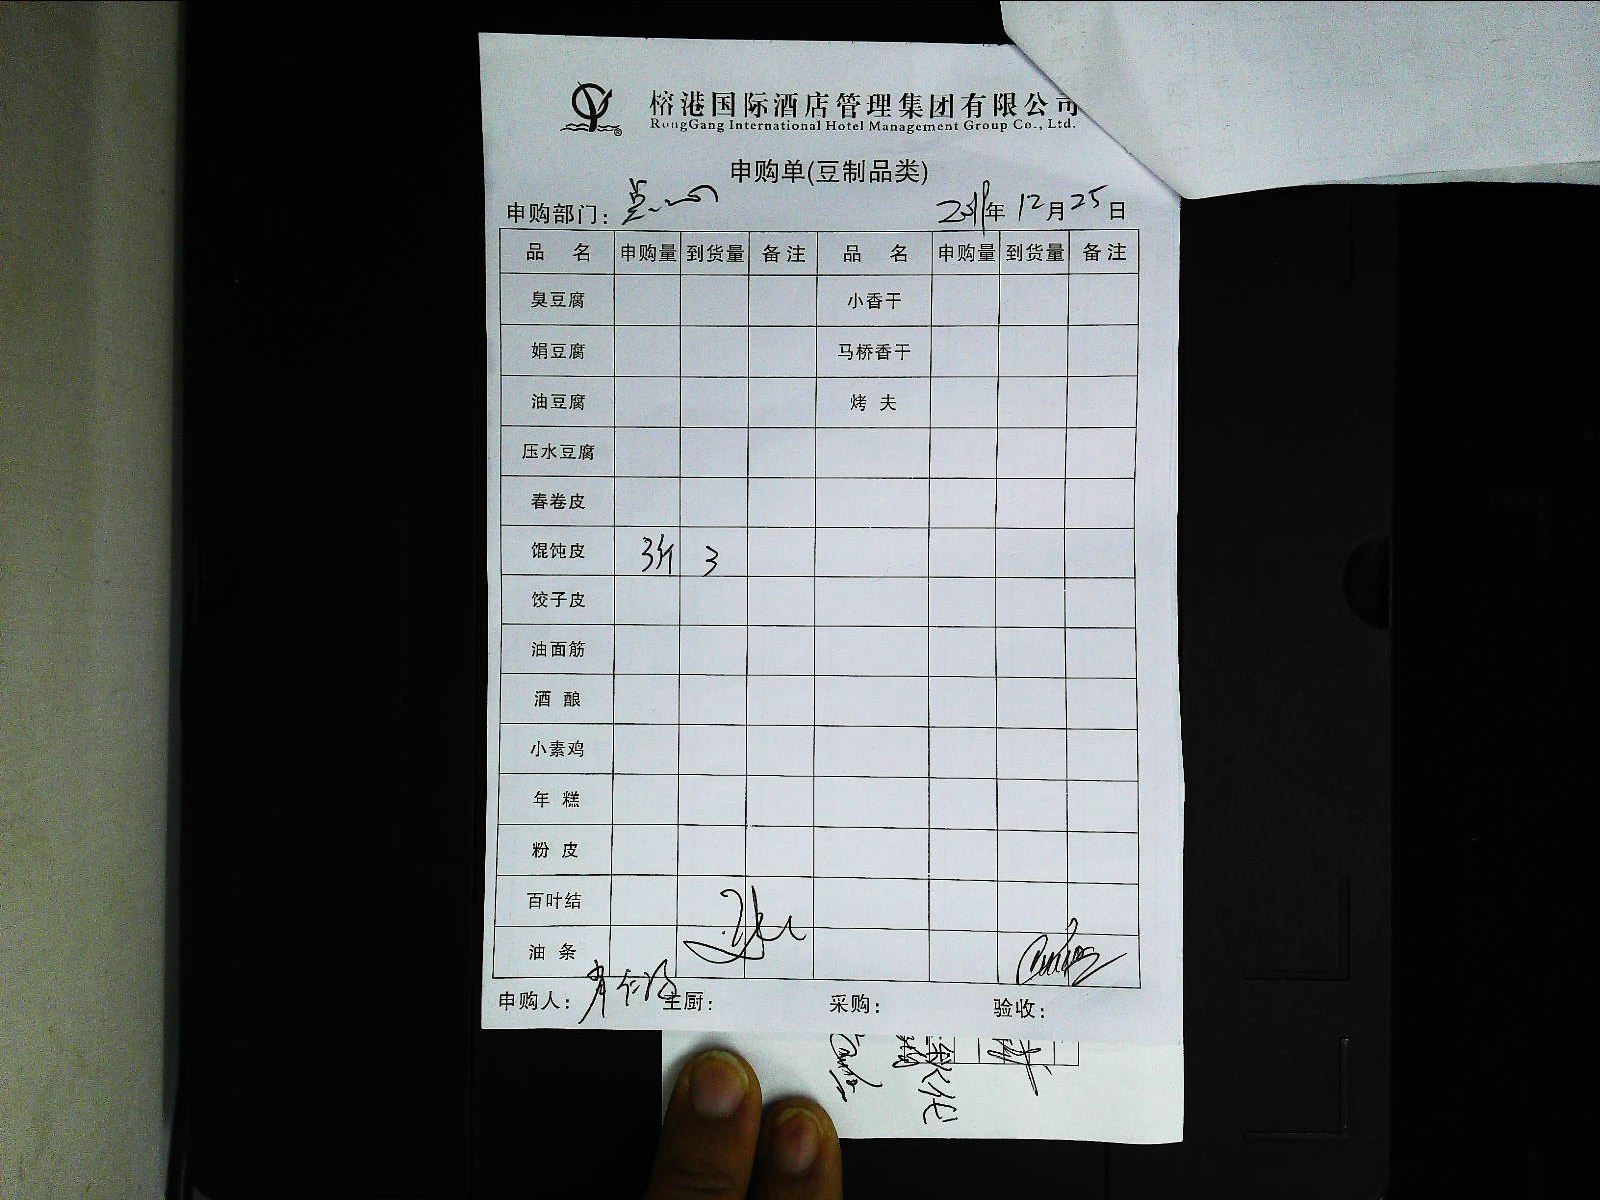 榕港国际酒店管理集团有限公司
RongGang International Hotel Management Group Co., Ltd.
申购单(豆制品类)
申购部门： 点心 年 12 月 25 日
品 名 申购量 到货量 备注 品 名 申购量 到货量 备注
臭豆腐 小香干
娟豆腐 马桥香干
油豆腐 烤 夫
压水豆腐
春卷皮
馄饨皮 3斤 3
饺子皮
油面筋
酒 酿
小素鸡
年 糕
粉 皮
百叶结
油 条
申购人： 主厨： 采购： 验收：